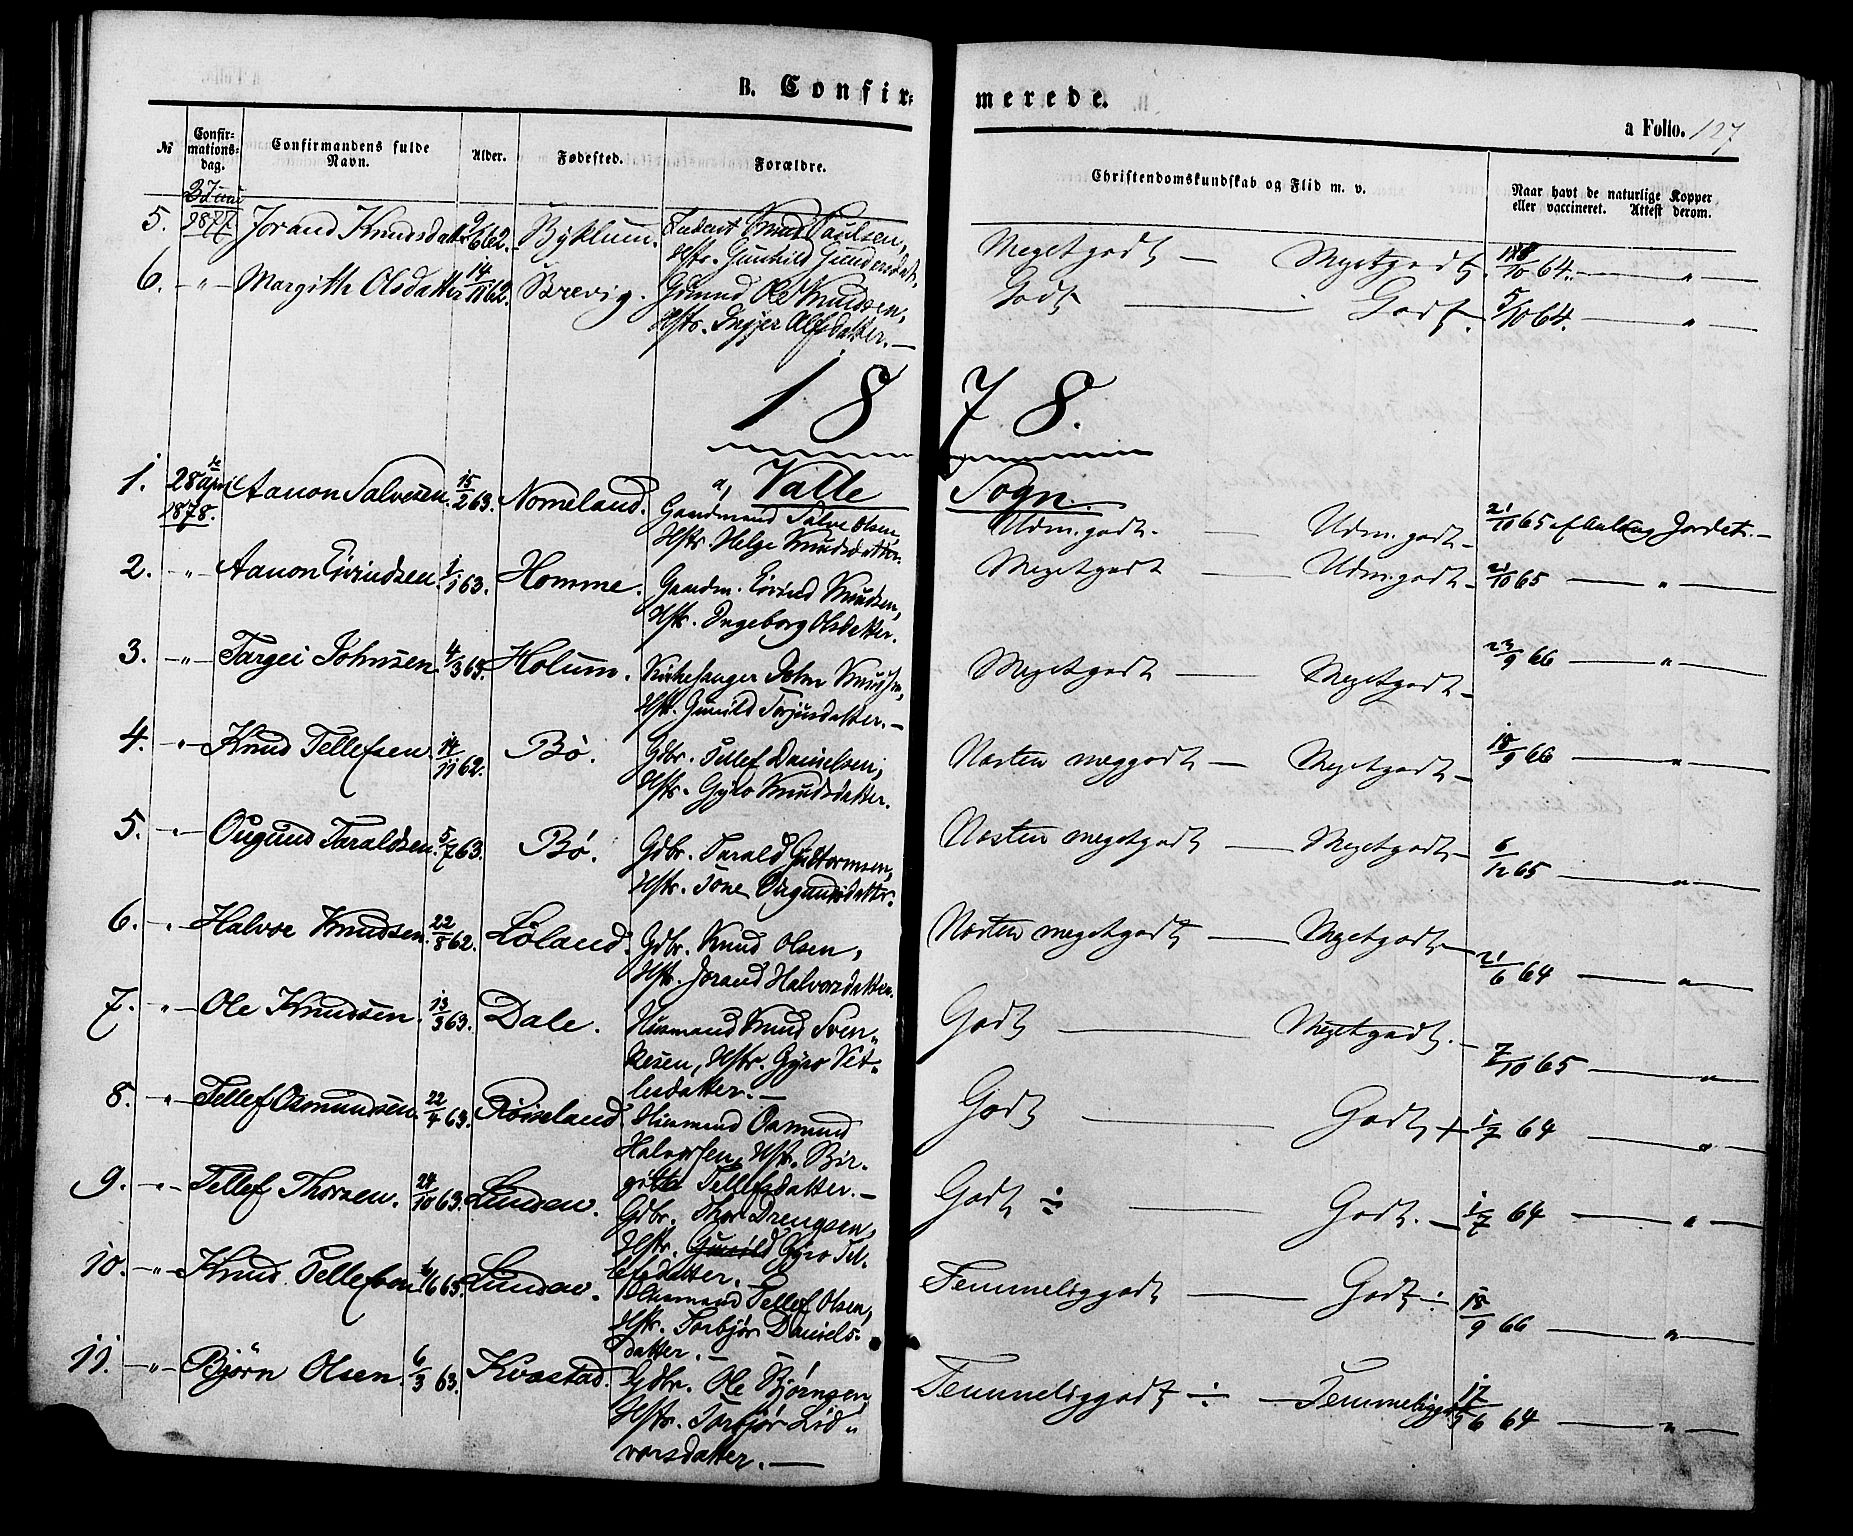 B. Confir- merede.
a Folio. 127
№ Confirmations-dag. Confirmandens fulde Navn. Alder. Fødested. Forældre. Christendomskundskab og Flid m. v. Naar havt de naturlige Kopper eller vaccineret. Attest derom.
5. 1877 Jorand Knudsdatter 9/6 62. Byklum. Knud Paulsen,
Hstr. Gunhild Gundersdat. Megetgodt — Megetgodt. 18/10 64. — "
6. — " — Margith Olsdatter 14/11 62. Brevig. Gmnd Ole Knudsen,
Hstr. Inger Alfsdatter. — Godt — Godt. 5/10 64. — "
1878.
a, Valle Sogn.
1. 28de April 1878. Aanon Salvesen. 15/2 63. Nomeland. Gaardmand Salve Olsen,
Hstr. Helge Knudsdatter. Udm. godt. — Udm. godt — 21/10 65 af Jordet. —
2. — " — Aanon Eivindsen. 1/1 63. Homme. Gaardm. Eivind Knudsen,
Hstr. Ingeborg Olsdatter. Megetgodt — Udm. godt — 21/10 65 — " —
3. — " — Targei Johnsen. 4/3 63. Holum. Kirkesanger John Knudsen,
Hstr. Gunild Torjusdatter. — Megetgodt — Megetgodt — 23/9 66 — " —
4. — " Knud Tellefsen. 14/11 62. Bø. Gdbr. Tellef Danielsen,
Hstr. Gyro Knudsdatter. Næsten meggodt — Megetgodt — 18/9 66 — " —
5. — " — Ougund Taraldsen. 5/7 63. Bø. Gdbr. Tarald Guttormsen,
Hstr. Tone Ougundsdatter. Næsten megetgodt — Megetgodt — 6/12 65 — " —
6. — " — Halvor Knudsen. 22/8 62. Løland. Gdbr. Knud Olsen,
Hstr. Jorand Halvorsdatter. Næsten megetgodt — Megetgodt — 21/6 64 — " —
7. — " — Ole Knudsen. 13/3 63. Dale. Huusmand Knud Sven-
kesen, Hstr. Gyro Vet-
lesdatter. — Godt — Megetgodt. — 7/10 65 — " —
8. — " — Tellef Osmundsen 22/4 63. Røiseland. Huusmand Osmund
Halvorsen, Hstr. Bir-
gitte Tellefsdatter. — Godt — Godt + 1/7 64 — " —
9. — " — Tellef Thorsen. 24/10 63. Lunden. Gdbr. Thor Drengsen,
Hstr. Gunild Gyro Tel-
lefsdatter. Godt ÷ — Godt. — 1/7 64 — " —
10. — " — Knud Tellefsen. Lunden. Huusmand Tellef Olsen,
Hstr. Torbjør Daniels-
datter. — Temmeliggodt — Godt ÷ 18/9 66 — " —
11. — " — Bjørn Olsen. 6/3 63. Kvæstad. Gdbr. Ole Bjørnsen,
Hstr. Torbjør Lid-
vorsdatter. — Temmeliggodt ÷ — Temmeliggodt 17/6 64 — " —